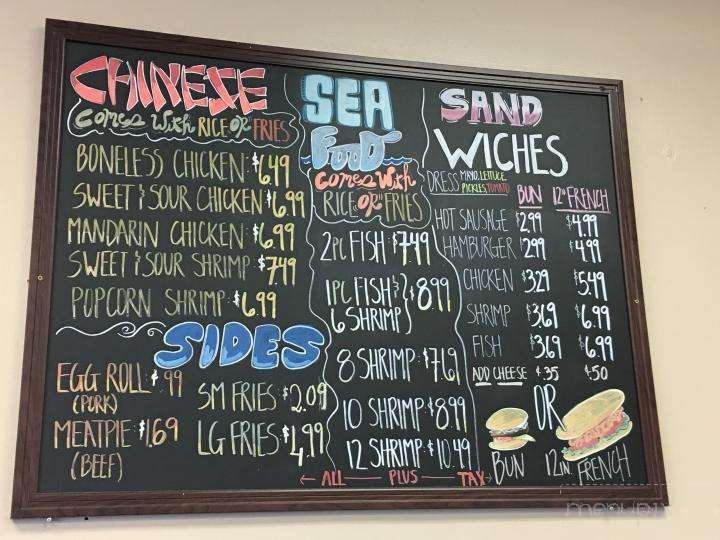 CHINESE
Comes With RICE "OR" FRIES
BONELESS CHICKEN: $6.49
SWEET & SOUR CHICKEN: $6.99
MANDARIN CHICKEN: $6.99
SWEET & SOUR SHRIMP: $7.49
POPCORN SHRIMP: $6.99
SIDES
EGG ROLL $.99
(PORK)
MEATPIE: $1.69
(BEEF)
SM FRIES: $2.09
LG FRIES: $4.99
SEA
FOOD
Comes With
RICE "OR" FRIES
2PC FISH: $7.49
1PC FISH &
6 SHRIMP } $8.99
8 SHRIMP: $7.69
10 SHRIMP: $8.99
12 SHRIMP: $10.49
← ALL — PLUS — TAX →
SAND
WICHES
DRESS MAYO, LETTUCE,
PICKLES, TOMATO
BUN 12" FRENCH
HOT SAUSAGE $2.99 $4.99
HAMBURGER $2.99 $4.99
CHICKEN $3.29 $5.49
SHRIMP $3.69 $6.99
FISH $3.69 $6.99
ADD CHEESE $.35 $.50
OR
BUN 12IN. FRENCH
menupix